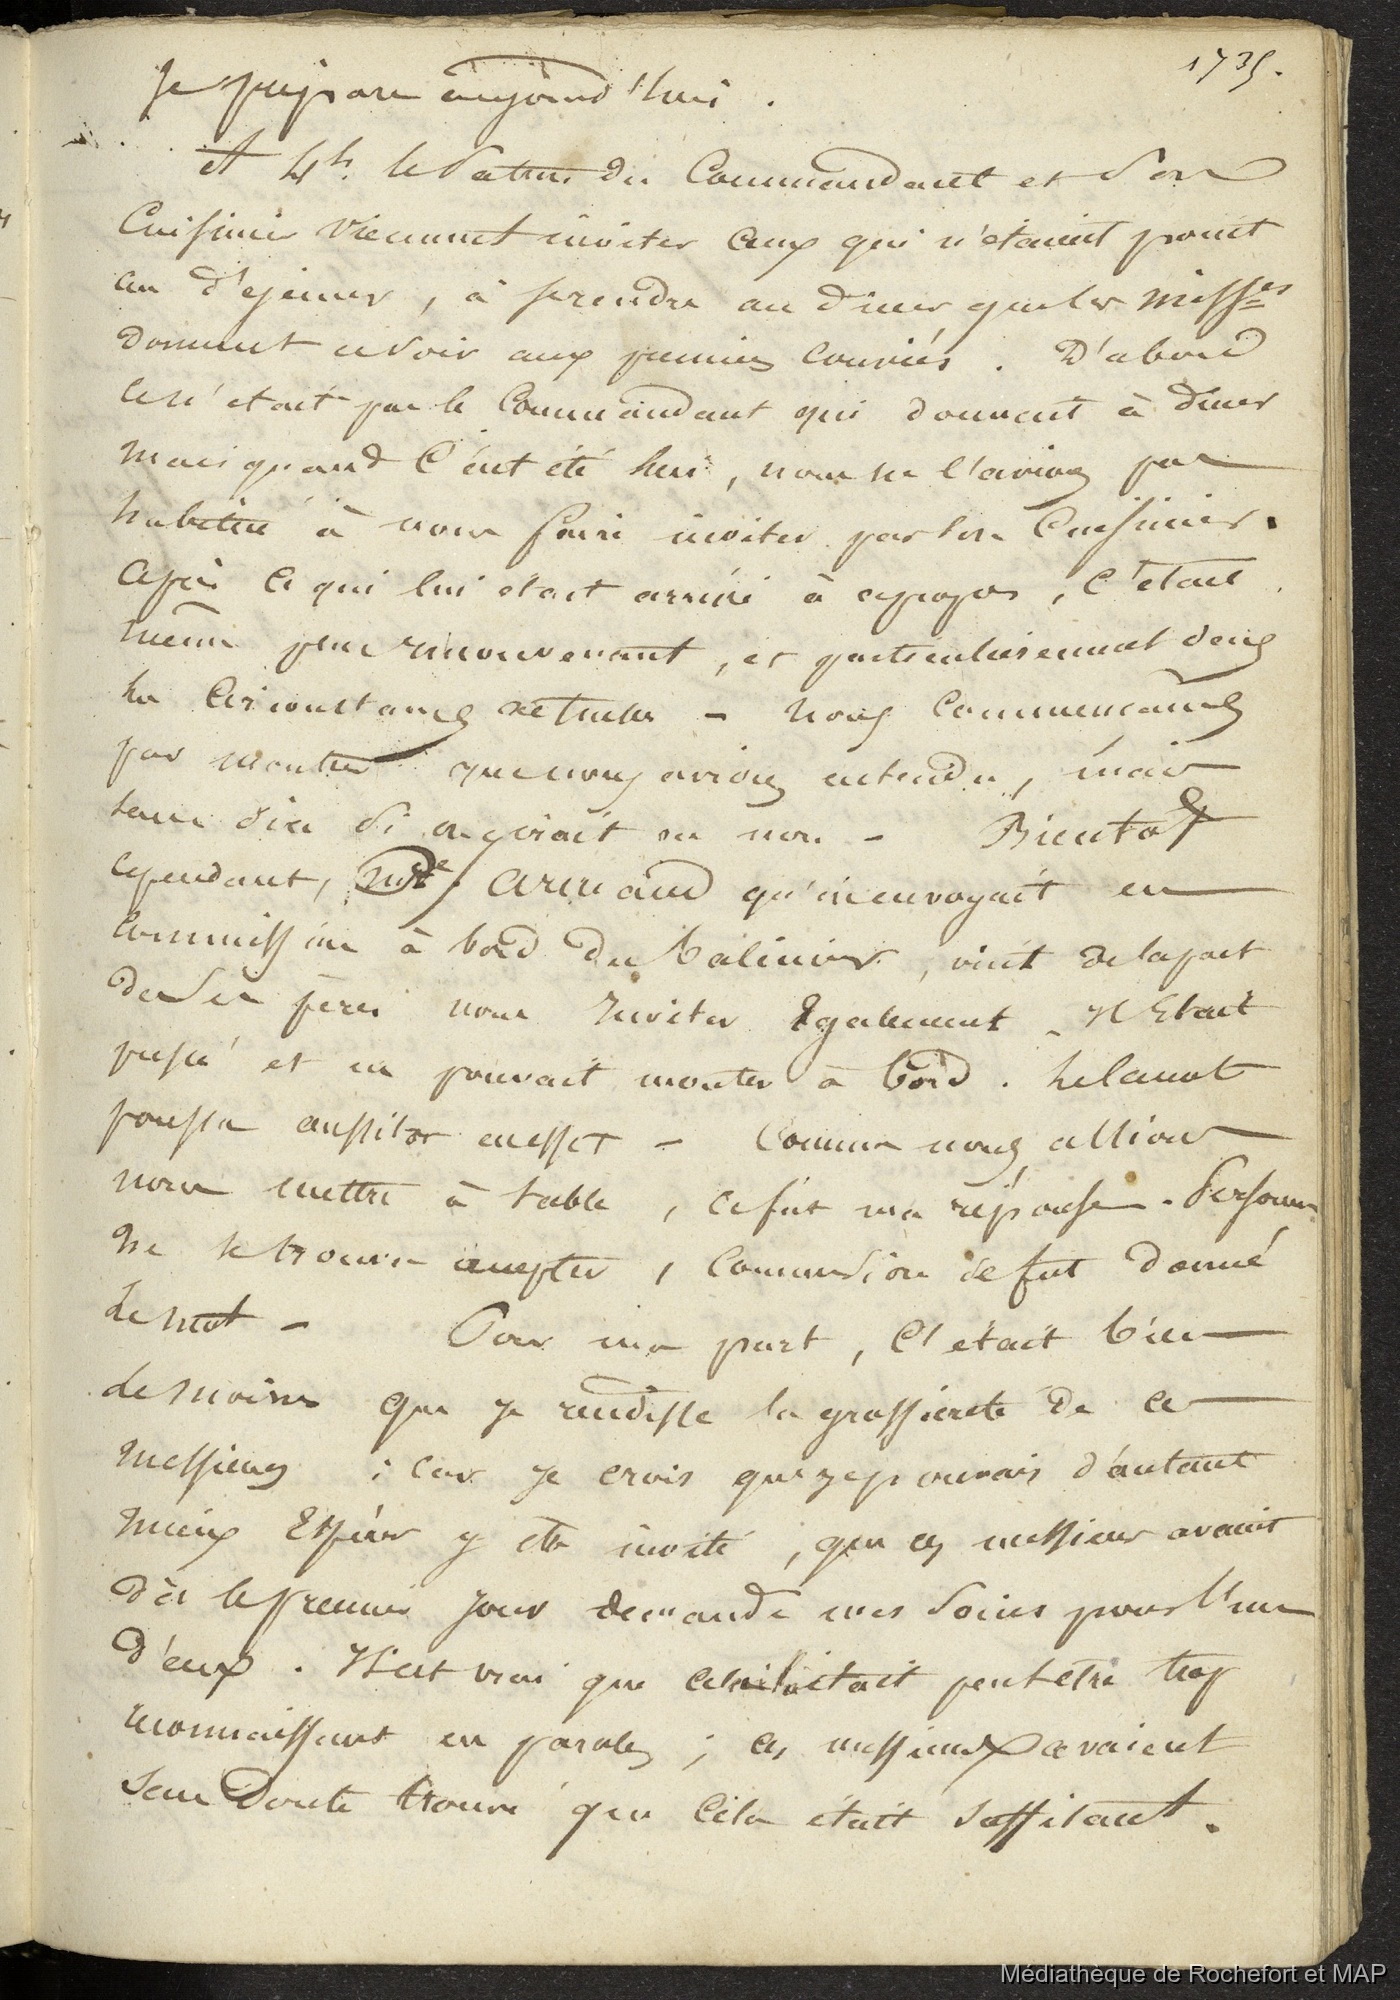 1735.
je prépare aujourd'hui.
A 4h. le Patron du Commandant et Son
Cuisinier viennent inviter ceux qui n'étaient point
au déjeuner, à se rendre au diner que les Miss.es
donnent ce soir aux premiers conviés. D'abord
ce n'était pas le Commandant qui donnait à diner
mais quand C'eut été lui, nous ne l'avions pas
habitué à nous faire inviter par son Cuisinier.
Après ce qui lui était arrivé à ce propos, C'était
même peu convenant, et particulièrement dans
les Circonstances actuelles - nous Commençames
par montrer que nous avions entendu, mais
sans dire si on y irait ou non - Bientot
cependant, Mr. Armand qu'on envoyait en
Commission à bord du balinier, vint de la part
de Ses frères nous Inviter Egalement - Il Etait
pressé et ne pouvait monter à bord. Le Canot
poussa aussitot en effet - Comme nous allions
nous mettre à table, ce fut ma réponse. Personne
ne se trouva accepter, comme si on se fut donné
le mot - Pour ma part, C'était bien
le moins que je rendisse la grossiereté de ces
Messieurs ; car je crois que je pouvais d'autant
mieux Espérer y etre invité, que ces messieurs avaient
dès le premier jour demandé mes Soins pour l'un
d'eux. Il est vrai que celui là était peut etre trop
reconnaissant en paroles ; ces messieurs avaient
Sans Doute trouvé que Cela était suffisant.
Médiathèque de Rochefort et MAP